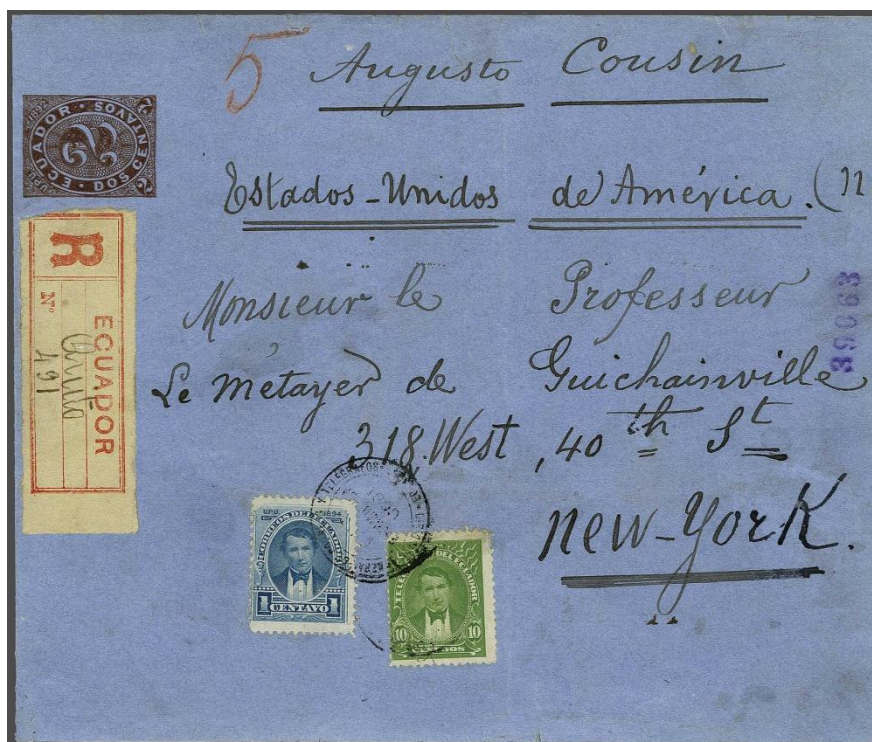 5
Augusto Cousin
ECUADOR · DOS CENTAVOS
2
2
Estados-Unidos de América. (n
R
ECUADOR
Nº 491
Monsieur le Professeur
39063
Le Métayer de Guichainville
318. West, 40th St
New-York.
U.P.U. 1894
CORREOS DEL ECUADOR
1 CENTAVO 1
DEL ECUADOR
10 10